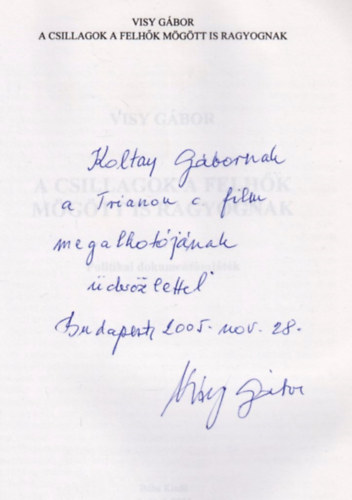 VISY GÁBOR
A CSILLAGOK A FELHŐK MÖGÖTT IS RAGYOGNAK
VISY GÁBOR
A CSILLAGOK A FELHŐK
MÖGÖTT IS RAGYOGNAK
Koltay Gábornak
a Trianon c. film
megalkotójának
üdvözlettel
Budapest, 2005. nov. 28.
Visy Gábor